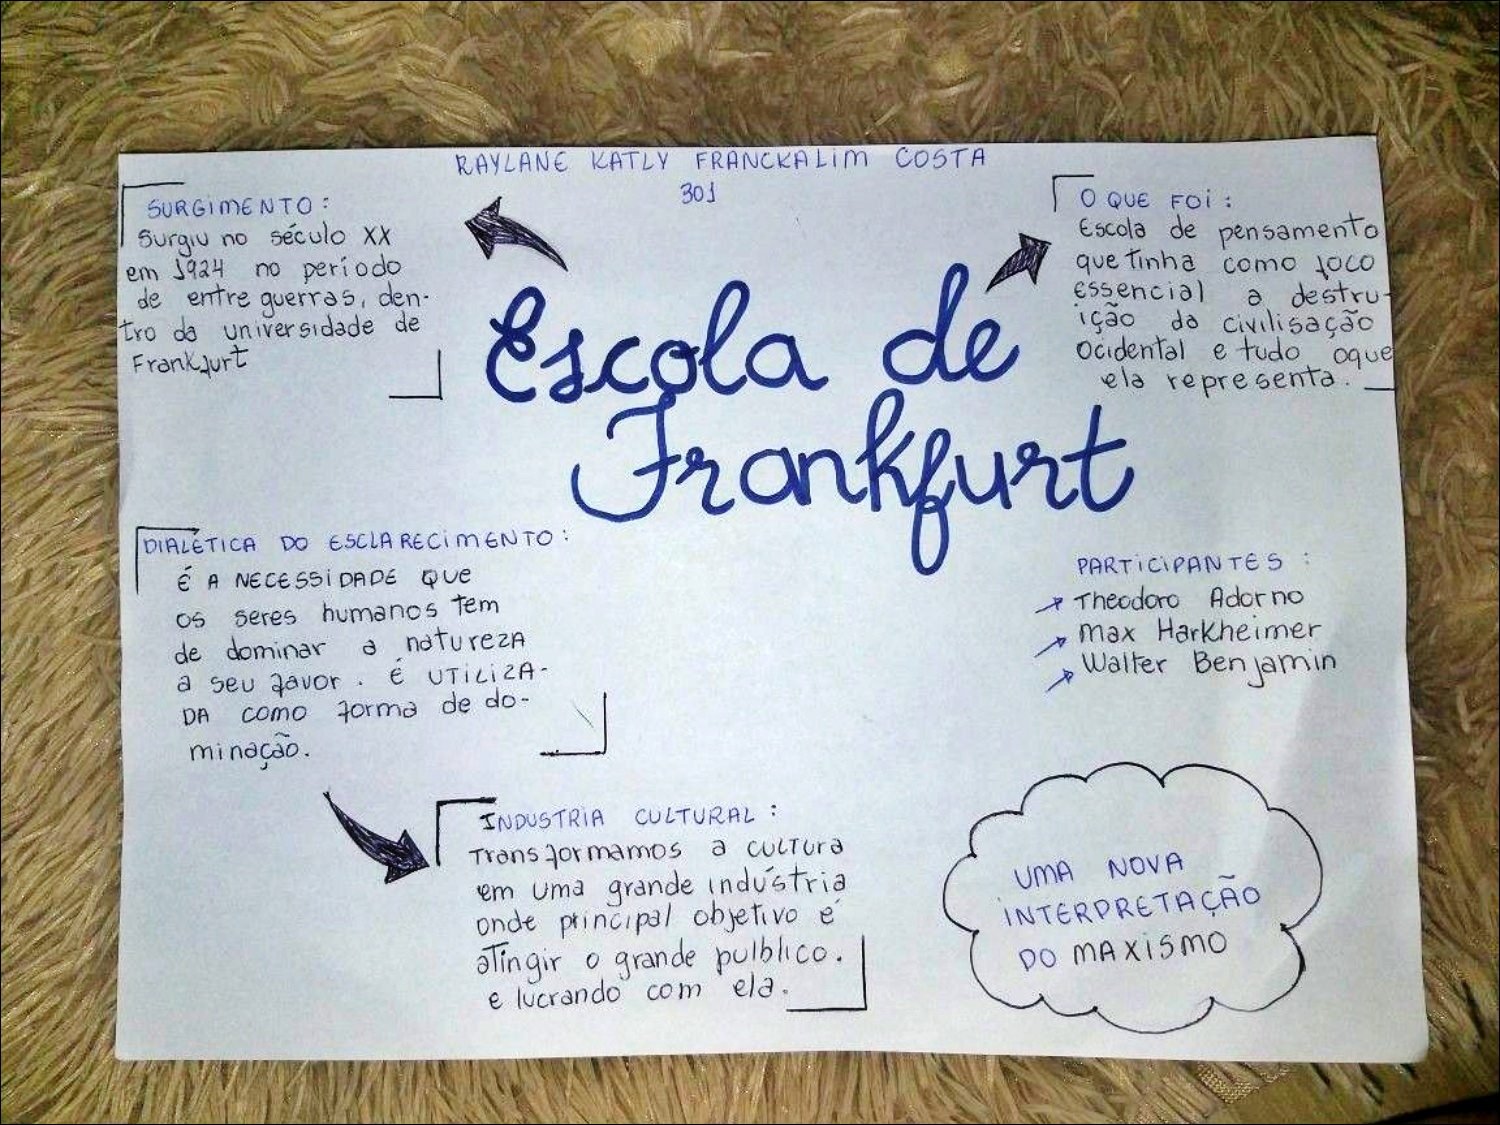 RAYLANE KATLY FRANCKALIM COSTA
301
SURGIMENTO:
Surgiu no século XX
em 1924 no período
de entre guerras, den-
tro da universidade de
Frankfurt
O QUE FOI:
Escola de pensamento
que tinha como foco
essencial a destru-
ição da civilisação
Ocidental e tudo oque
ela representa.
Escola de
Frankfurt
DIALÉTICA DO ESCLARECIMENTO:
É A NECESSIDADE QUE
os seres humanos tem
de dominar a natureza
a seu favor. É UTILIZA-
DA como forma de do-
minação.
PARTICIPANTES:
Theodoro Adorno
Max Harkheimer
Walter Benjamin
INDUSTRIA CULTURAL:
Transformamos a cultura
em uma grande indústria
onde principal objetivo é
atingir o grande pulblico.
e lucrando com ela.
UMA NOVA
INTERPRETAÇÃO
DO MAXISMO